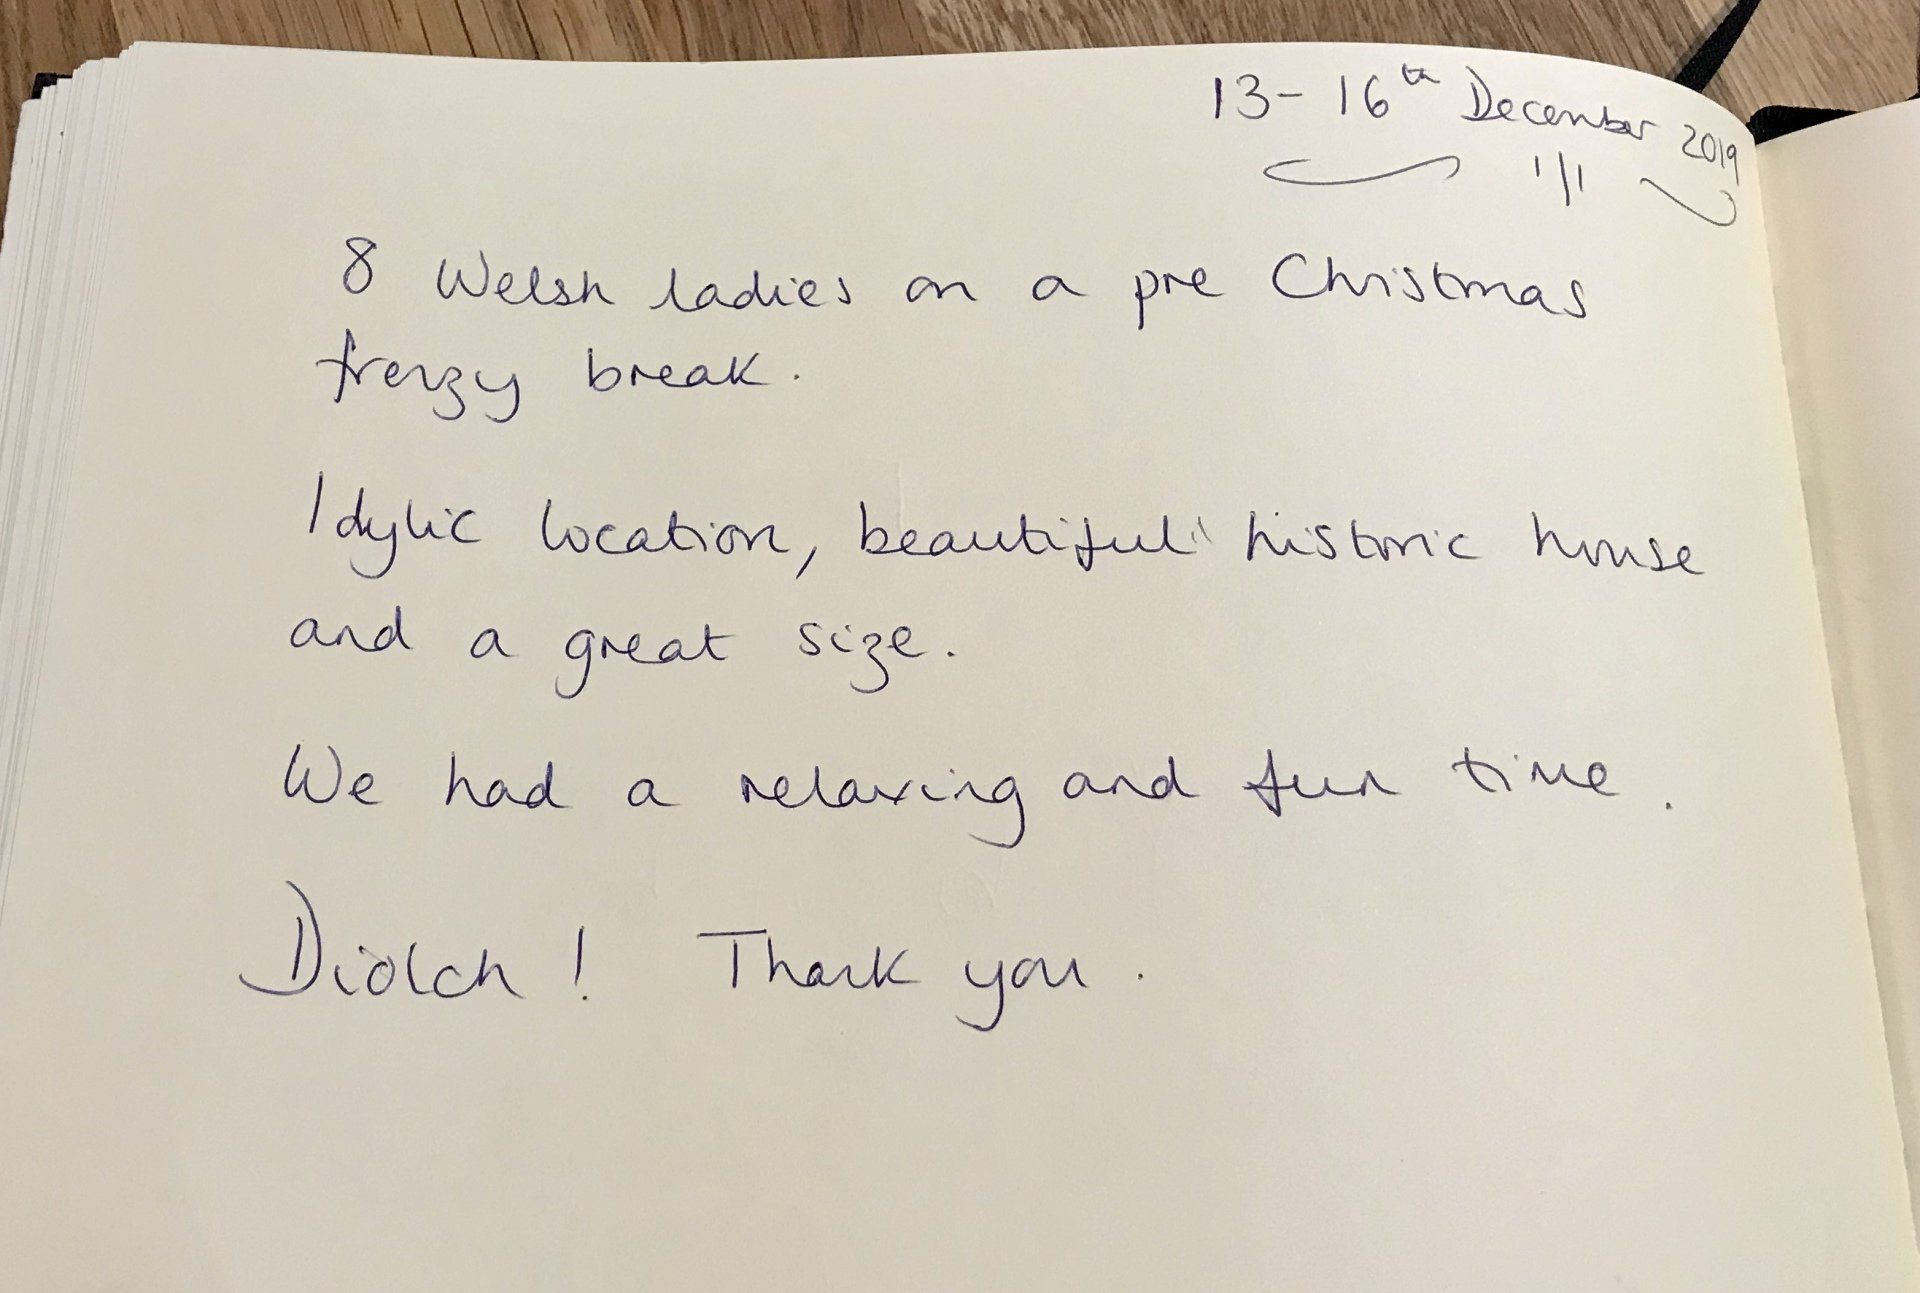 13 - 16th December 2019
8 Welsh ladies on a pre Christmas
frenzy break.
Idylic location, beautiful historic house
and a great size.
We had a relaxing and fun time.
Diolch! Thank you.